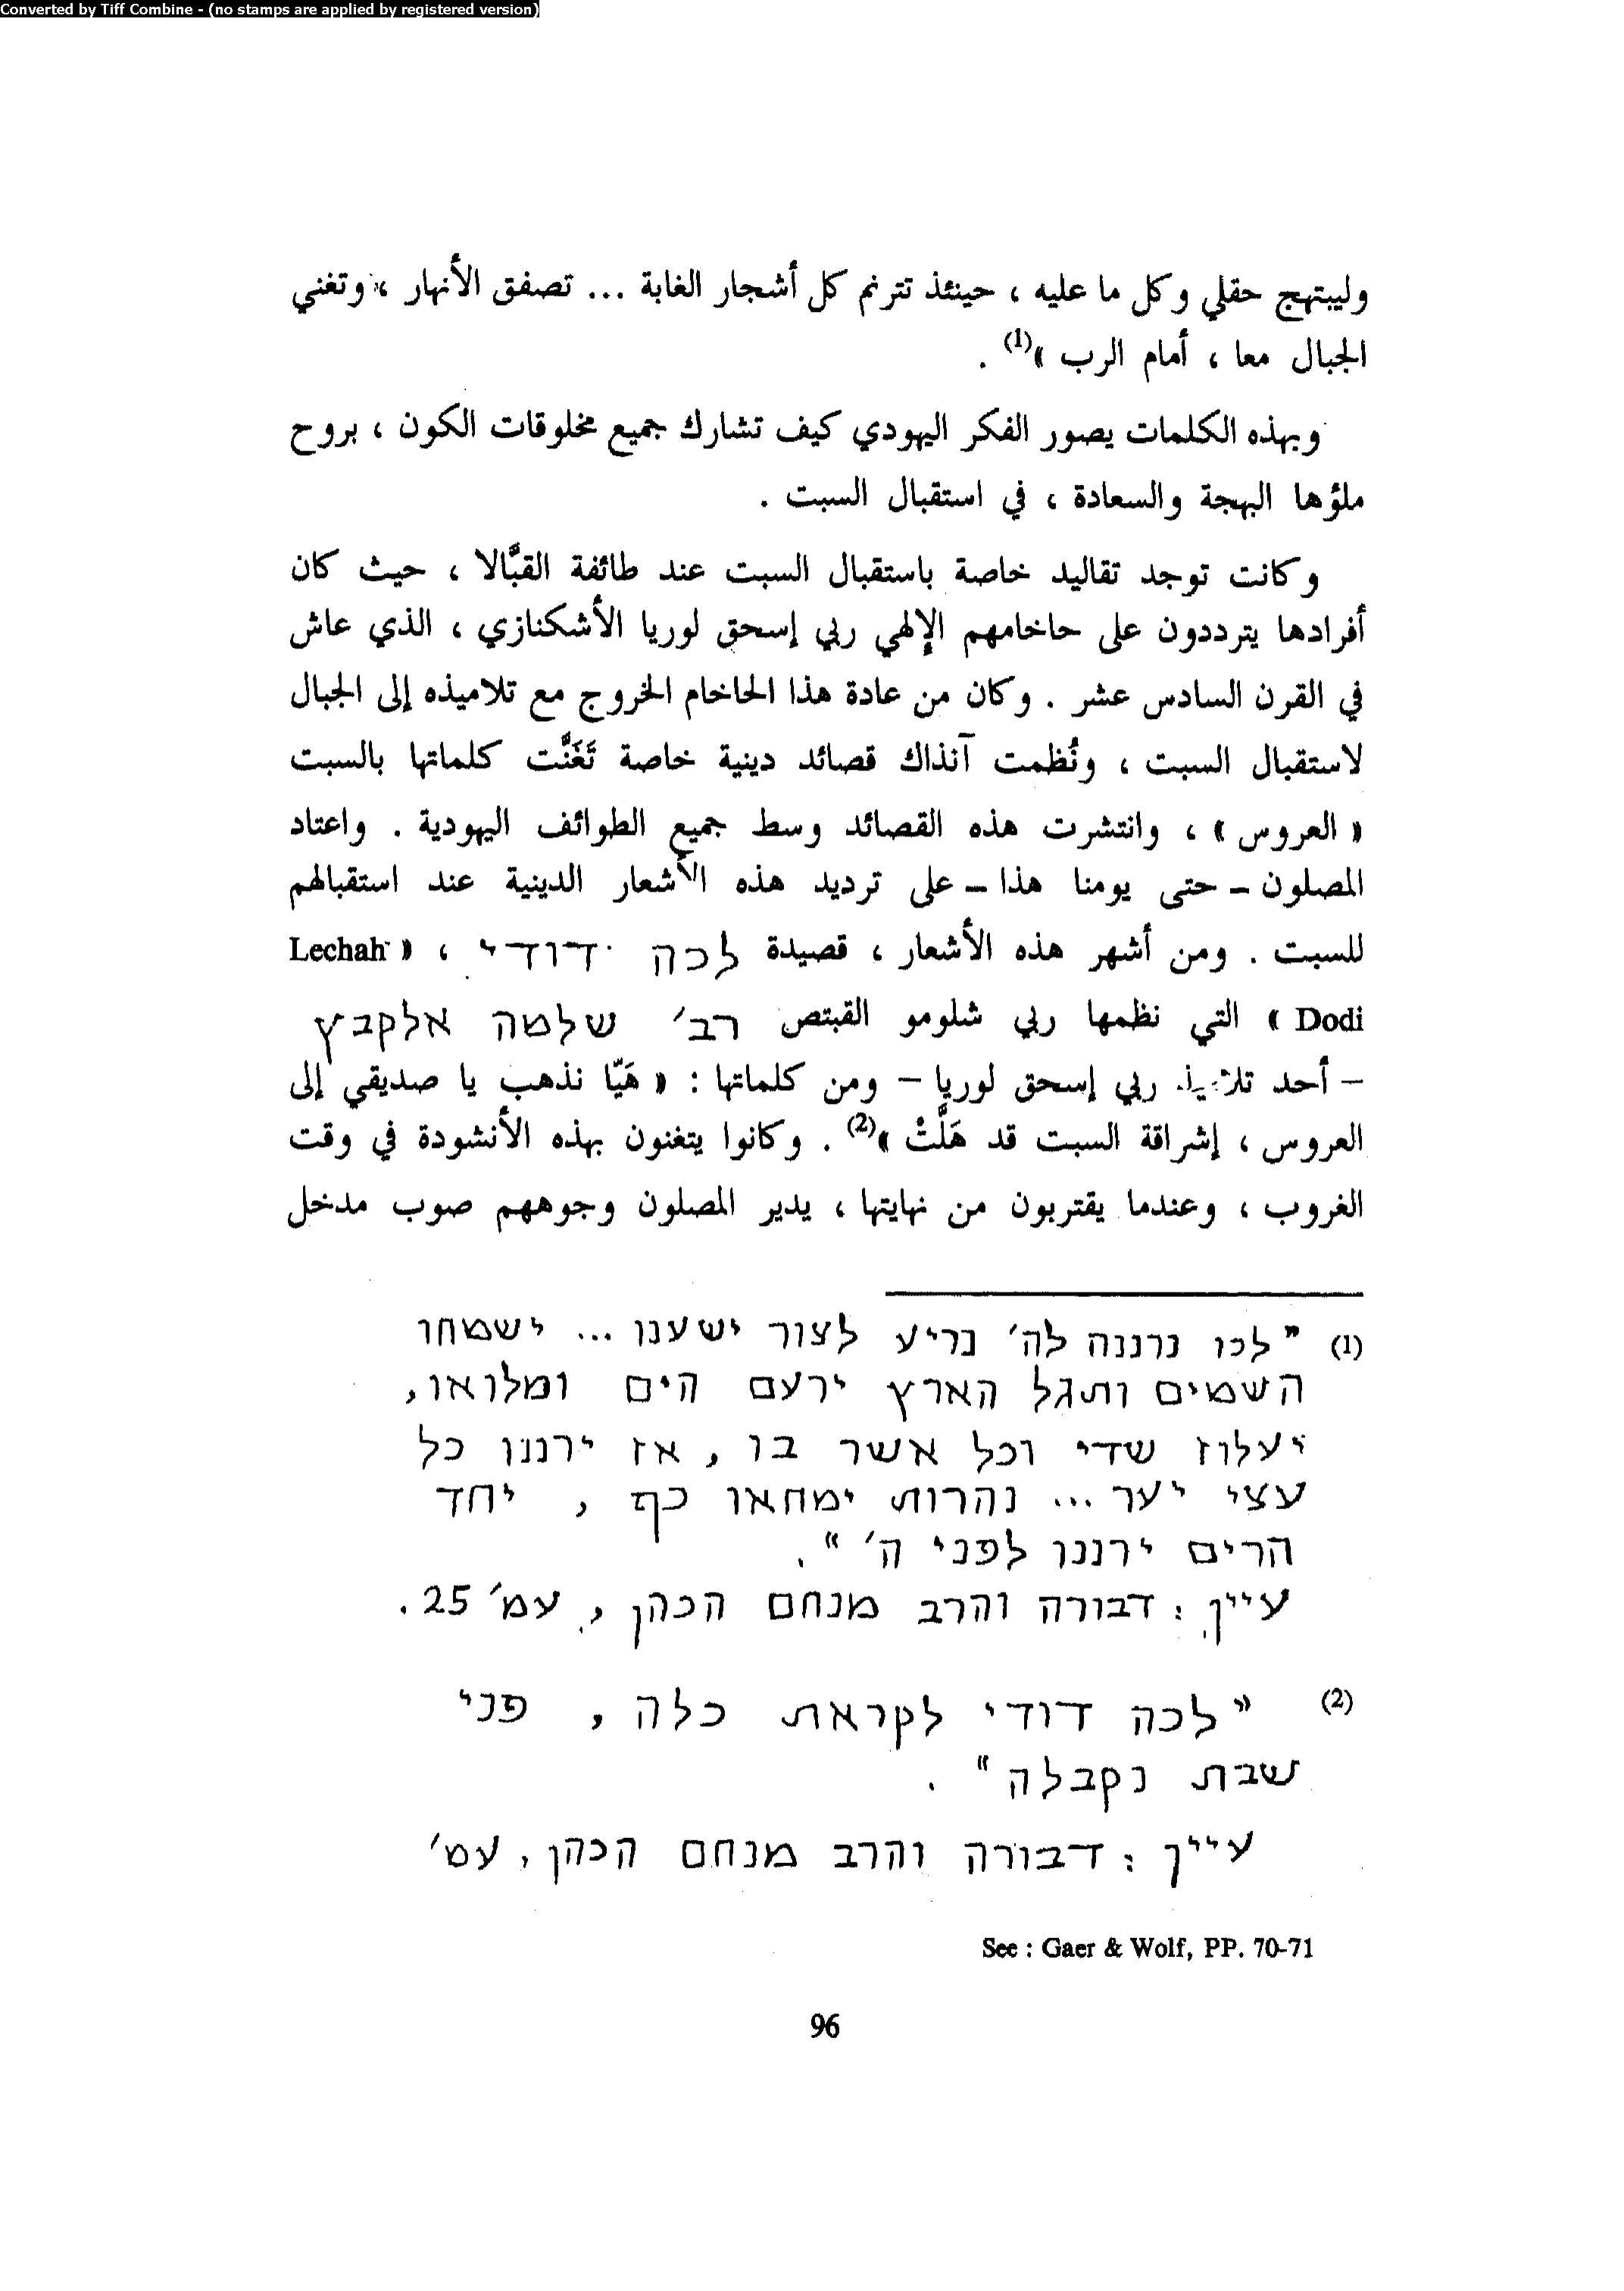 Converted by Tiff Combine - (no stamps are applied by registered version)
وليبتهج حقلي وكل ما عليه ، حينئذ تترنم كل أشجار الغابة ... تصفق الأنهار ، وتغني
الجبال معا ، أمام الرب »(1) .
وبهذه الكلمات يصور الفكر اليهودي كيف تشارك جميع مخلوقات الكون ، بروح
ملؤها البهجة والسعادة ، في استقبال السبت .
وكانت توجد تقاليد خاصة باستقبال السبت عند طائفة القبَّالا ، حيث كان
أفرادها يترددون على حاخامهم الإلهي ربي إسحق لوريا الأشكنازي ، الذي عاش
في القرن السادس عشر . وكان من عادة هذا الحاخام الخروج مع تلاميذه إلى الجبال
لاستقبال السبت ، ونُظمت آنذاك قصائد دينية خاصة تَغَنَّت كلماتها بالسبت
« العروس » ، وانتشرت هذه القصائد وسط جميع الطوائف اليهودية . واعتاد
المصلون – حتى يومنا هذا – على ترديد هذه الأشعار الدينية عند استقبالهم
للسبت . ومن أشهر هذه الأشعار ، قصيدة לכה דודי ، « Lechah
Dodi » التي نظمها ربي شلومو القبتص רב׳ שלמה אלקבץ
– أحد تلاميذ ربي إسحق لوريا – ومن كلماتها : « هَيّا نذهب يا صديقي إلى
العروس ، إشراقة السبت قد هَلَّتْ »(2) . وكانوا يتغنون بهذه الأنشودة في وقت
الغروب ، وعندما يقتربون من نهايتها ، يدير المصلون وجوههم صوب مدخل
(1) ״לכו נרננה לה׳ נריע לצור ישענו ... ישמחו
השמים ותגל הארץ ירעם הים ומלואו,
יעלוז שדי וכל אשר בו , אז ירננו כל
עצי יער ... נהרות ימחאו כף , יחד
הרים ירננו לפני ה׳ ״ .
עיין : דבורה והרב מנחם הכהן , עמ׳ 25 .
(2) ״לכה דודי לקראת כלה , פני
שבת נקבלה״ .
עיין : דבורה והרב מנחם הכהן , עמ׳
See : Gaer & Wolf, PP. 70-71
96